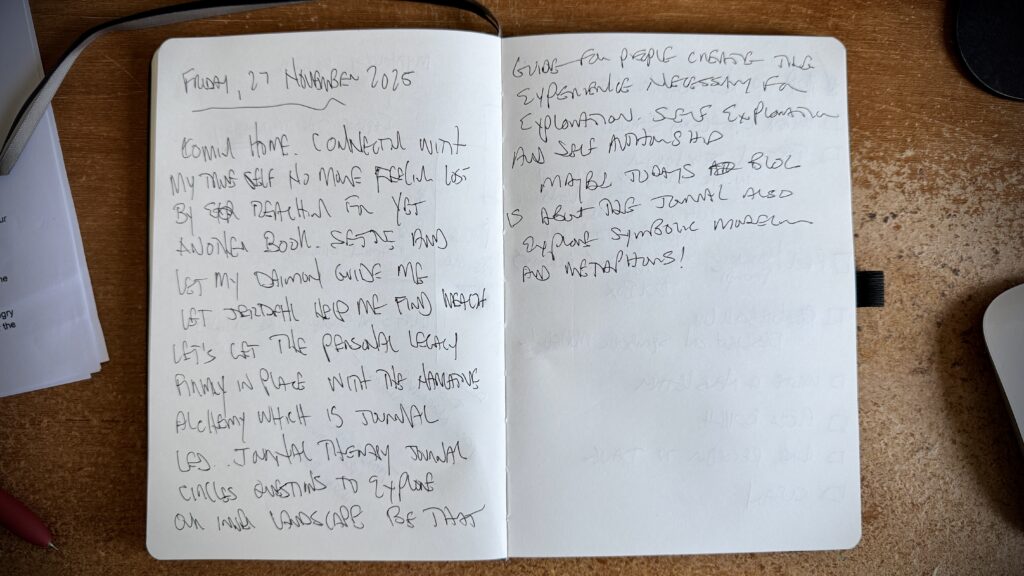 FRIDAY, 27 NOVEMBER 2025
COMIN HOME. CONNECTIN WITH
MY TRUE SELF NO MORE FEELIN LOST
BY REACHIN FOR YET
ANOTHER BOOK. SETTLE AND
LET MY DAIMON GUIDE ME
LET JEDIDAH HELP ME FIND WEALTH
LET'S GET THE PERSONAL LEGACY
FIRMLY IN PLACE WITH THE NARRATIVE
ALCHEMY WHICH IS JOURNAL
LED. JOURNAL THERAPY JOURNAL
CIRCLES QUESTIONS TO EXPLORE
OUR INNER LANDSCAPE BE THAT
GUIDE FOR PEOPLE CREATE THE
EXPERIENCE NECESSARY FOR
EXPLORATION. SELF EXPLORATION
AND SELF AUTHORSHIP
MAYBE TODAYS BLOG
IS ABOUT THE JOURNAL ALSO
EXPLORE SYMBOLIC MODELLIN
AND METAPHORS!